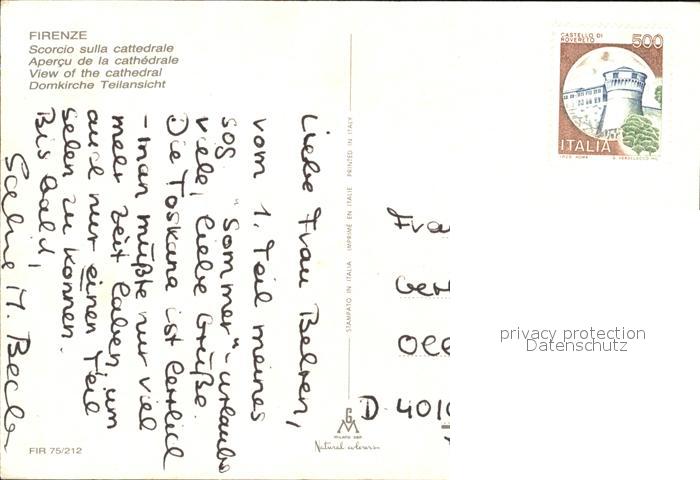 FIRENZE
Scorcio sulla cattedrale
Aperçu de la cathédrale
View of the cathedral
Domkirche Teilansicht
Liebe Frau Beltren,
vom 1. Teil meines
sog. "Sommer"-urlaubs
viele, liebe Grüße.
Die Toskana ist herrlich
- man müßte nur viel
mehr Zeit haben, um
auch nur einen Teil
sehen zu können.
Bis bald,
Sabine M. Becher
FIR 75/212
STAMPATO IN ITALIA IMPRIMÉ EN ITALIE PRINTED IN ITALY
MILANO
Natural colours
CASTELLO DI
ROVERETO
500
ITALIA
I.P.Z.S. ROMA
Fra
Ger
D-401
privacy protection
Datenschutz